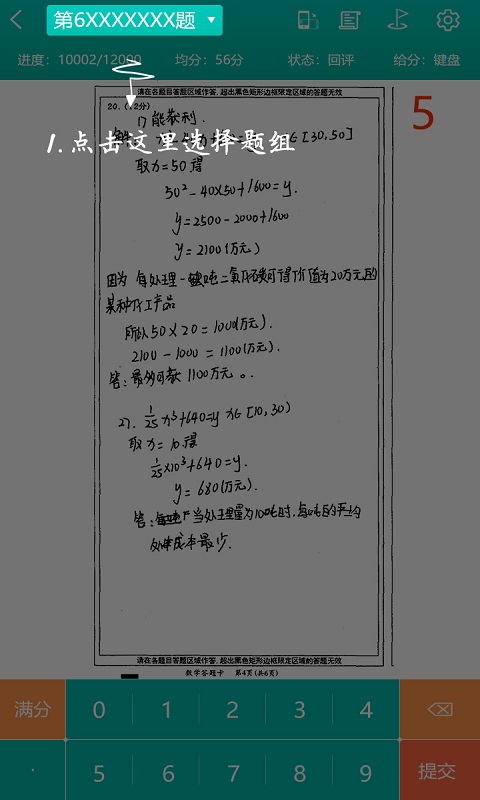 第6XXXXXXX题
进度：10002/12000 均分：56分 状态：回评 给分：键盘
请在各题目答题区域作答，超出黑色矩形边框限定区域的答题无效
20.(12分)
5
1.点击这里选择题组
能获利.
[30,50]
取x=50得
50²-40×50+1600=y.
y=2500-2000+1600
y=2100(万元)
因为 每处理一吨二氧化碳可得价值为20万元的
某种化工产品
所以50×20=1000(万元).
2100-1000=1100(万元).
答:最多可获1100万元。
27. 1/25 x³+640=y x∈[10,30)
取x=10得
1/25×10³+640=y.
y=680(万元).
答: 当处理量为10吨时,每吨的平均
处理成本最少.
请在各题目答题区域作答，超出黑色矩形边框限定区域的答题无效
数学答题卡 第4页(共6页)
满分 0 1 2 3 4
. 5 6 7 8 9 提交